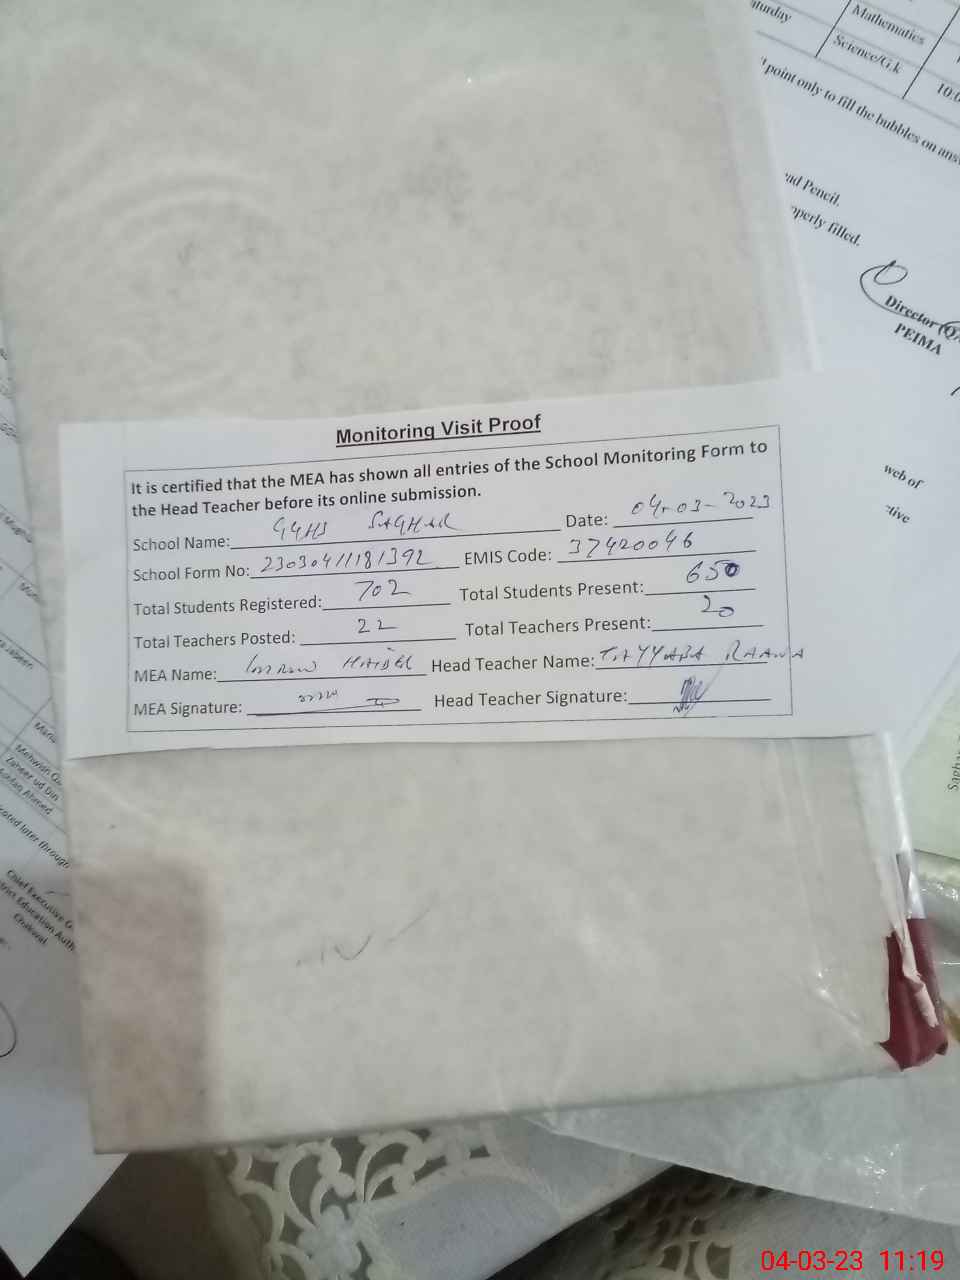 Mathematics
Science/G.k
10:0
point only to fill the bubbles on ans
Pencil.
filled.
Director (Q
PEIMA
web of
Monitoring Visit Proof
It is certified that the MEA has shown all entries of the School Monitoring Form to
the Head Teacher before its online submission.
School Name: GGHS SAGHAR Date: 04-03-2023
School Form No: 230304111181392 EMIS Code: 37420046
Total Students Registered: 702 Total Students Present: 650
Total Teachers Posted: 22 Total Teachers Present: 20
MEA Name: Head Teacher Name: TAYYABA RAANA
MEA Signature: Head Teacher Signature:
Mehwish G
Zaheer ud Din
Ahmed
later through
Chief Executive
Education Auth
Chakwal
04-03-23 11:19